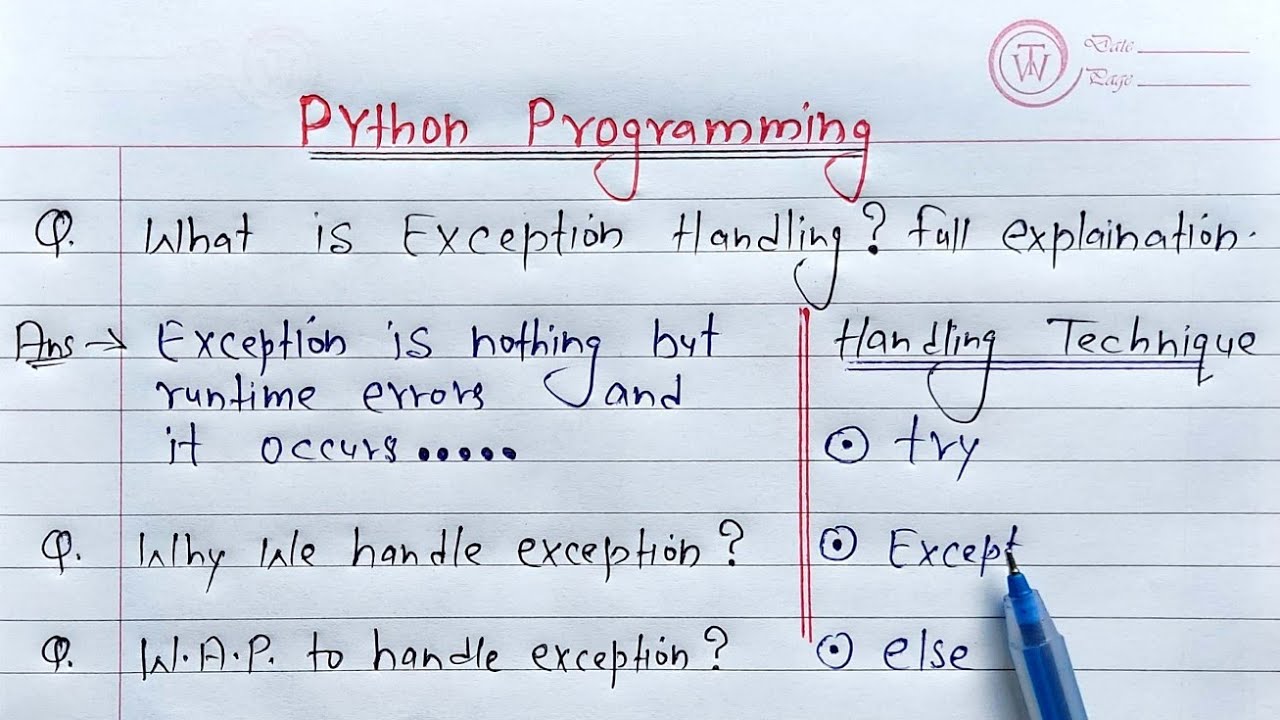 Date
Page
Python Programming
Q. What is Exception Handling? full explaination.
Ans → Exception is nothing but
runtime errors and
it occurs.....
Q. Why We handle exception?
Q. W.A.P. to handle exception?
Handling Technique
try
Except
else